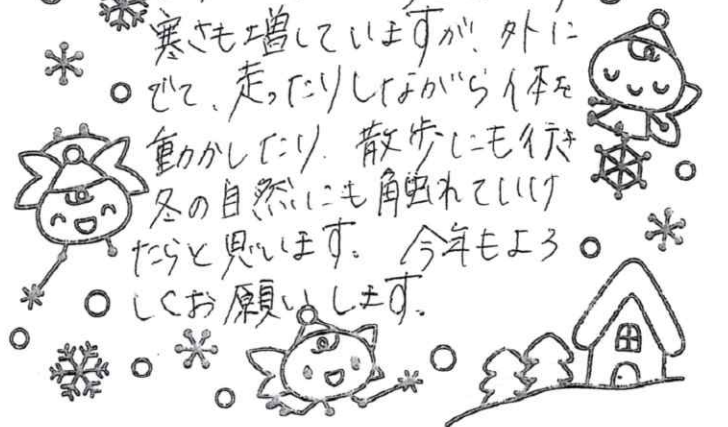 寒さも増していますが、外に
でて、走ったりしながら体を
動かしたり、散歩にも行き
冬の自然にも触れていけ
たらと思います。今年もよろ
しくお願いします。